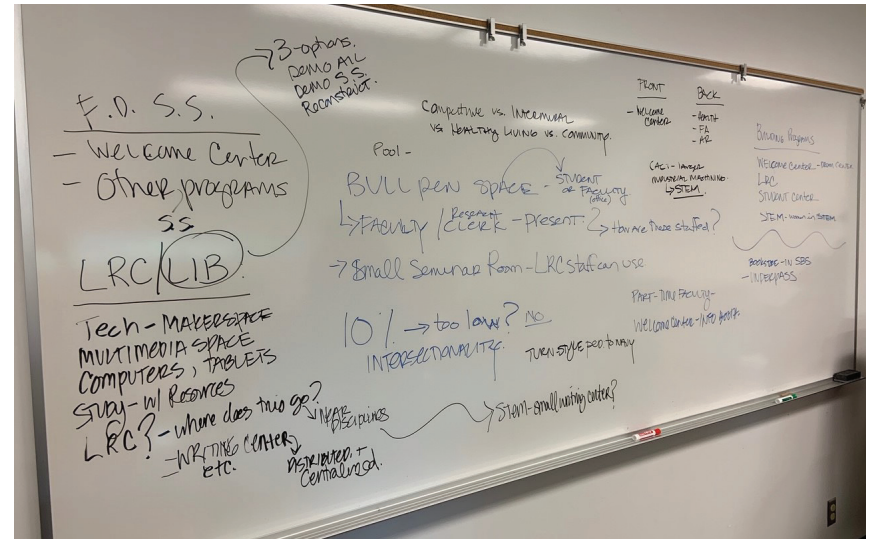 F.D. S.S.
- Welcome Center
- Other programs
S.S.
LRC/LIB.
Tech - MAKERSPACE
MULTIMEDIA SPACE
COMPUTERS, TABLETS
STUDY - w/ Resources
LRC? - where does this go?
- WRITING CENTER
etc.
NEAR
Disciplines
DISTRIBUTED +
Centralized.
3-options.
DEMO ALL
DEMO S.S.
Reconstruct.
Competitive vs. Intramural
vs Healthy Living vs. Community.
Pool -
BULL PEN SPACE - STUDENT
OR FACULTY
(office)
FACULTY / RESEARCH CLERK - PRESENT? How are these staffed?
→ Small Seminar Room - LRC staff can use
10% → too low? NO
INTERSECTIONALITY.
TURN-STYLE PED. TO
STEM - small writing center?
FRONT
- Welcome
Center
BACK
- HEALTH
- FA
- AR
INDUSTRIAL MACHINING.
STEM
Building Programs
WELCOME CENTER -
LRC
STUDENT CENTER
STEM -
BOOKSTORE - IN SBS
- UNDERPASS
PART-TIME FACULTY -
Welcome Center - INFO